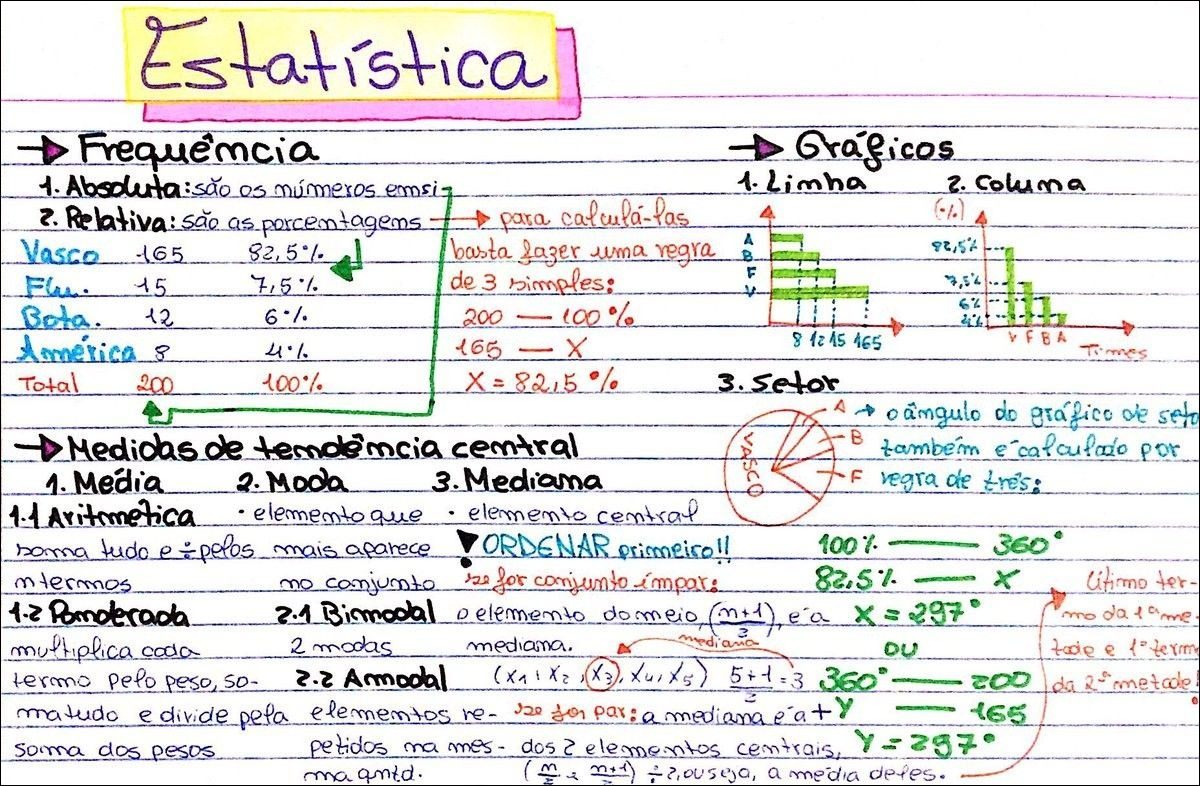 Estatística
Frequência
1. Absoluta: são os números em si
2. Relativa: são as porcentagens → para calculá-las
basta fazer uma regra
de 3 simples:
200 — 100%
165 — X
X = 82,5%
Vasco 165 82,5%
Flu. 15 7,5%
Bota. 12 6%
América 8 4%
Total 200 100%
Gráficos
1. Linha
A
B
F
V
8 12 15 165
2. Coluna
(%)
82,5%
7,5%
6%
4%
V F B A
Times
3. Setor
VASCO
A
B
F
→ o ângulo do gráfico de seto
também é calculado por
regra de três:
100% — 360°
82,5% — X
X = 297°
ou
360° — 200
Y — 165
Y = 297°
Medidas de tendência central
1. Média
1.1 Aritmética
soma tudo e ÷ pelos
n termos
1.2 Ponderada
multiplica cada
termo pelo peso, so-
ma tudo e divide pela
soma dos pesos
2. Moda
• elemento que
mais aparece
no conjunto
2.1 Bimodal
2 modas
2.2 Amodal
elementos re-
petidos na mes-
ma qntd.
3. Mediana
• elemento central
! ORDENAR primeiro!!
se for conjunto ímpar:
o elemento do meio, (n+1)/2, é a
mediana.
mediana
(x1, x2, x3, x4, x5) 5+1/2 = 3
se for par: a mediana é a +
dos 2 elementos centrais,
÷ 2, ou seja, a média deles.
Último ter-
mo da 1ª me-
tade e 1º term
da 2ª metade!